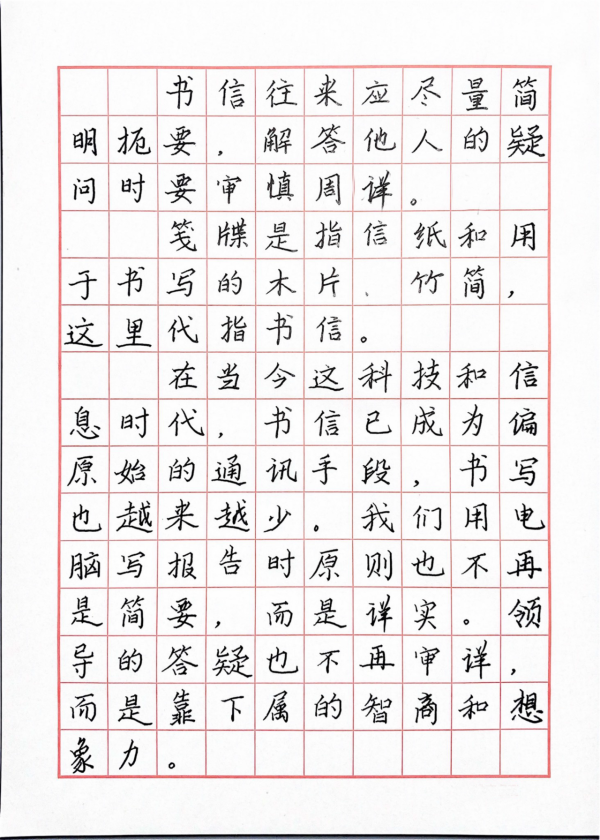 书信往来应尽量简
明扼要，解答他人的疑
问时要审慎周详。
笺牒是指信纸和用
于书写的木片、竹简，
这里代指书信。
在当今这科技和信
息时代，书信已成为偏
原始的通讯手段，书写
也越来越少。我们用电
脑写报告时原则也不再
是简要，而是详实。领
导的答疑也不再审详，
而是靠下属的智商和想
象力。